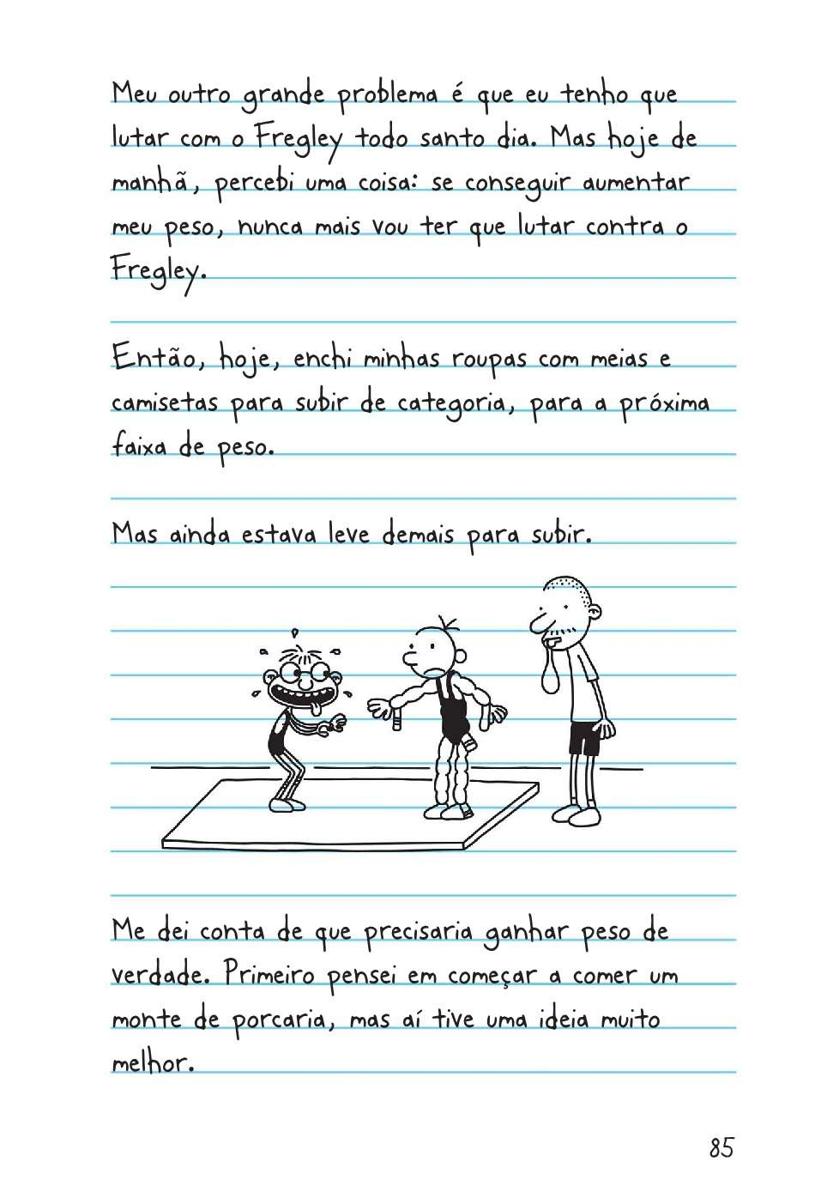 Meu outro grande problema é que eu tenho que
lutar com o Fregley todo santo dia. Mas hoje de
manhã, percebi uma coisa: se conseguir aumentar
meu peso, nunca mais vou ter que lutar contra o
Fregley.
Então, hoje, enchi minhas roupas com meias e
camisetas para subir de categoria, para a próxima
faixa de peso.
Mas ainda estava leve demais para subir.
Me dei conta de que precisaria ganhar peso de
verdade. Primeiro pensei em começar a comer um
monte de porcaria, mas aí tive uma ideia muito
melhor.
85